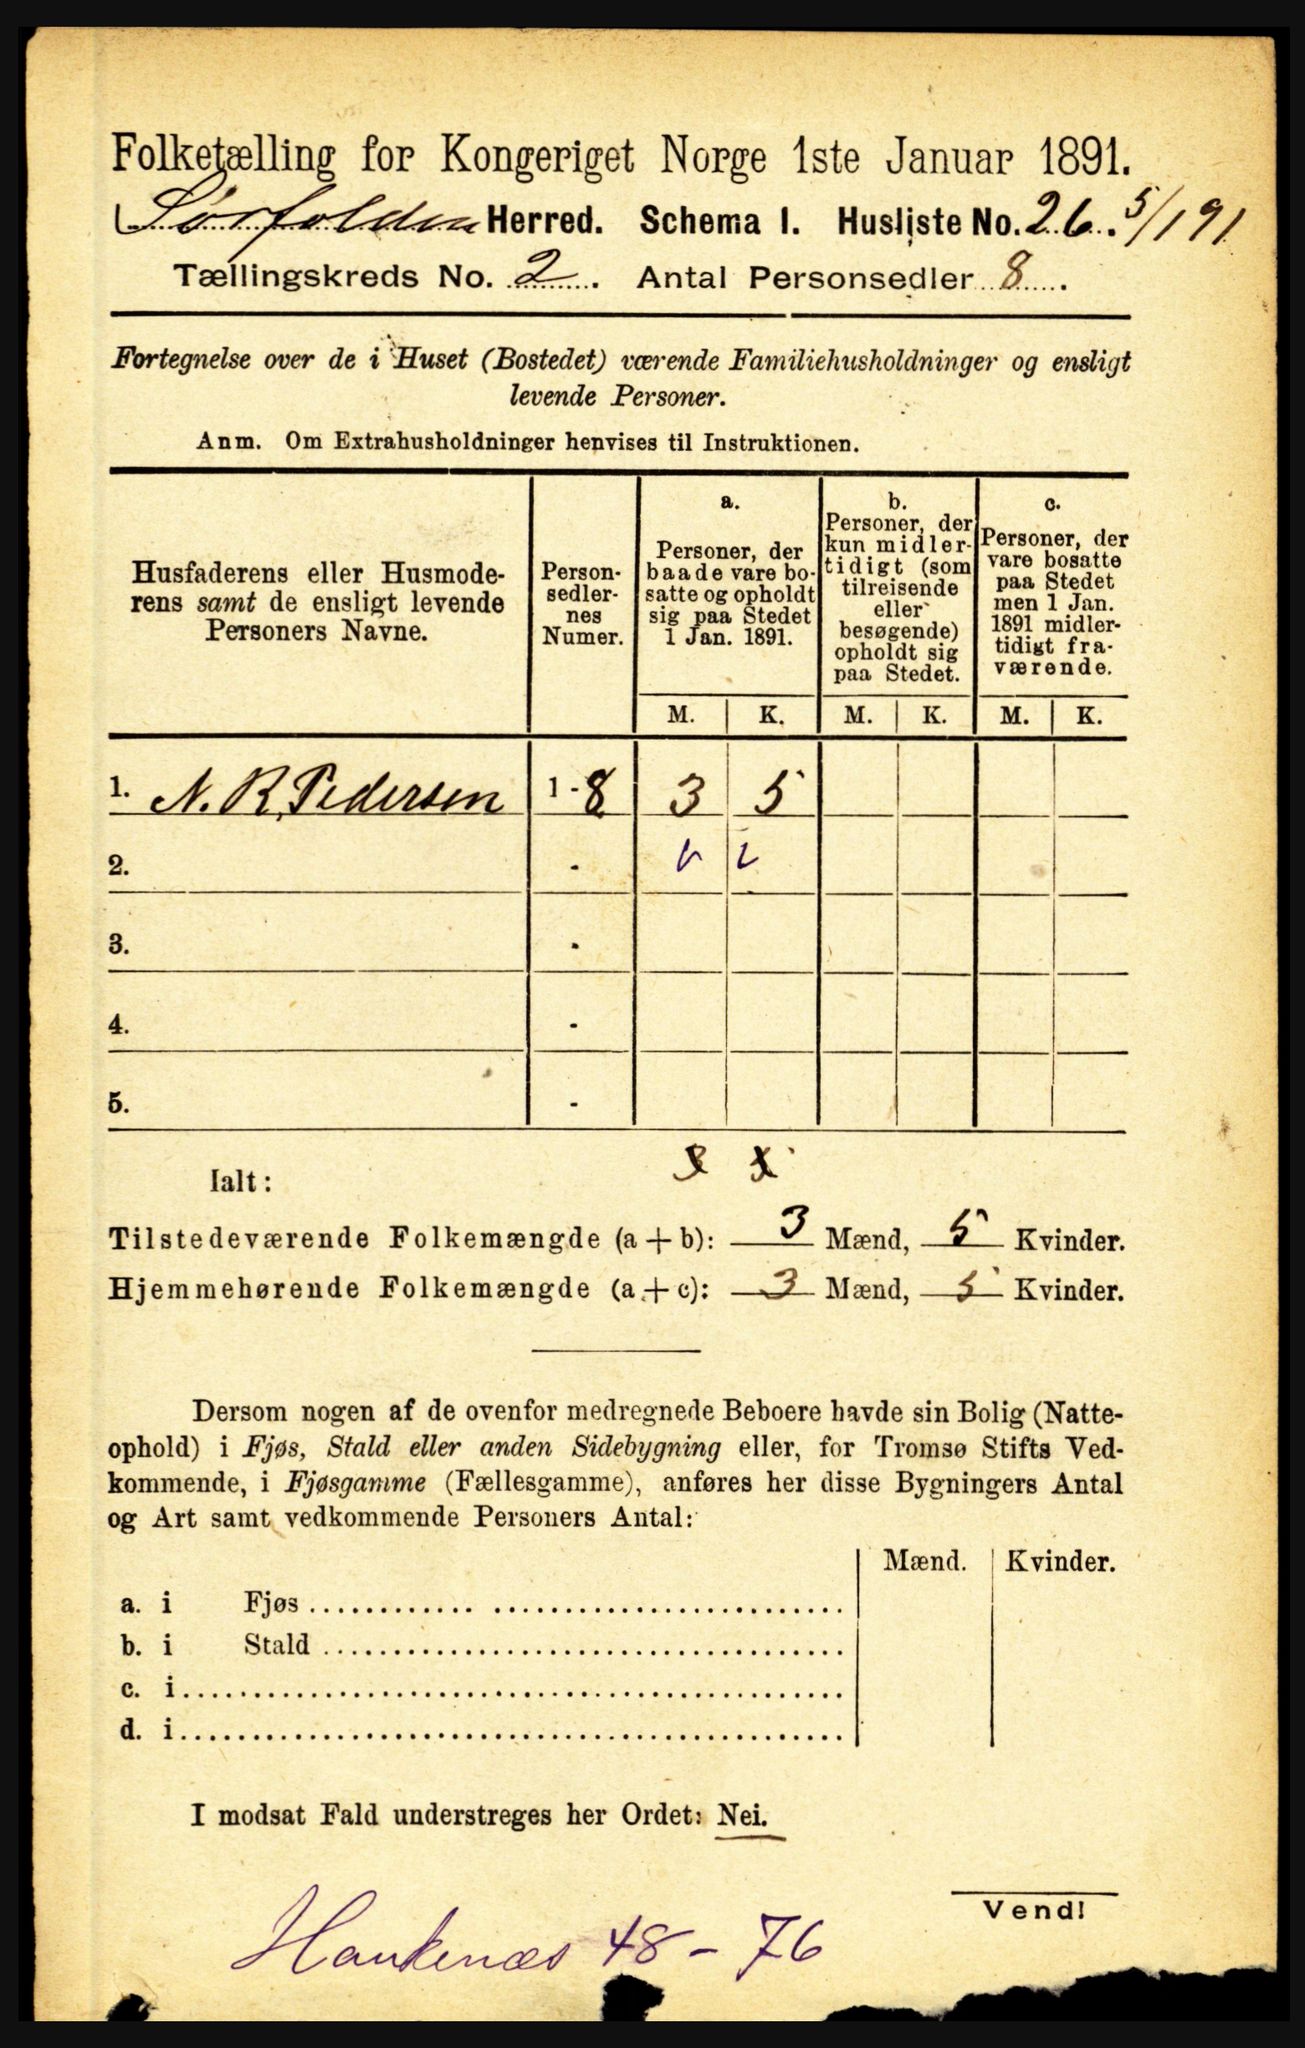 Folketælling for Kongeriget Norge 1ste Januar 1891.
Sørfolden Herred. Schema I. Husliste No. 26. 5/1 91
Tællingskreds No. 2. Antal Personsedler 8.
Fortegnelse over de i Huset (Bostedet) værende Familiehusholdninger og ensligt
levende Personer.
Anm. Om Extrahusholdninger henvises til Instruktionen.
Husfaderens eller Husmode-
rens samt de ensligt levende
Personers Navne.
Person-
sedler-
nes
Numer.
a.
Personer, der
baade vare bo-
satte og opholdt
sig paa Stedet
1 Jan. 1891.
b.
Personer, der
kun midler-
tidigt (som
tilreisende
eller
besøgende)
opholdt sig
paa Stedet.
c.
Personer, der
vare bosatte
paa Stedet
men 1 Jan.
1891 midler-
tidigt fra-
værende.
M. K. M. K. M. K.
1. N. R. Pedersen 1 - 8 3 5
2. -
3. -
4. -
5. -
Ialt:
Tilstedeværende Folkemængde (a + b): 3 Mænd, 5 Kvinder.
Hjemmehørende Folkemængde (a + c): 3 Mænd, 5 Kvinder.
Dersom nogen af de ovenfor medregnede Beboere havde sin Bolig (Natte-
ophold) i Fjøs, Stald eller anden Sidebygning eller, for Tromsø Stifts Ved-
kommende, i Fjøsgamme (Fællesgamme), anføres her disse Bygningers Antal
og Art samt vedkommende Personers Antal:
Mænd. Kvinder.
a. i Fjøs
b. i Stald
c. i
d. i
I modsat Fald understreges her Ordet: Nei.
Vend!
Haukenæs 48 - 76